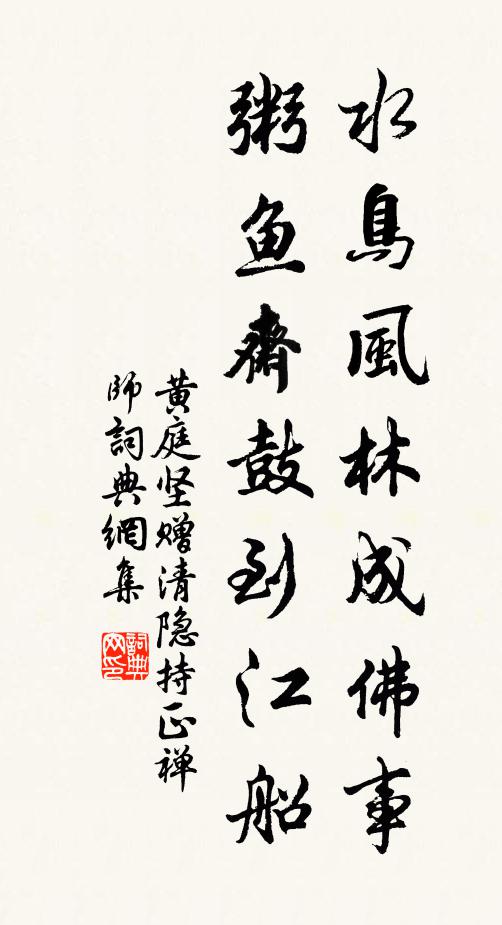 水鳥風林成佛事
粥鱼齋鼓到江船
黄庭坚赠清隐持正禅
師詞典網集
詞典网印